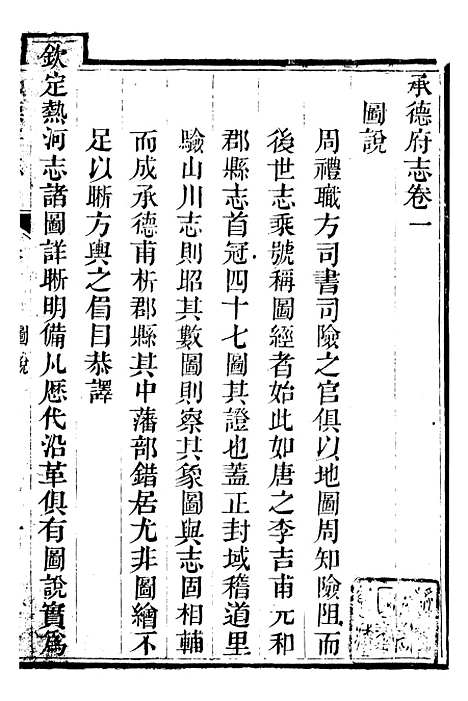 承德府志卷一
圖說
周禮職方司書司險之官俱以地圖周知險阻而
後世志乘號稱圖經者始此如唐之李吉甫元和
郡縣志首冠四十七圖其證也蓋正封域稽道里
驗山川志則昭其數圖則察其象圖與志固相輔
而成承德甫析郡縣其中藩部錯居尤非圖繪不
足以晣方輿之眉目恭譯
欽定熱河志諸圖詳晣明備凡歷代沿革俱有圖說實爲
圖說